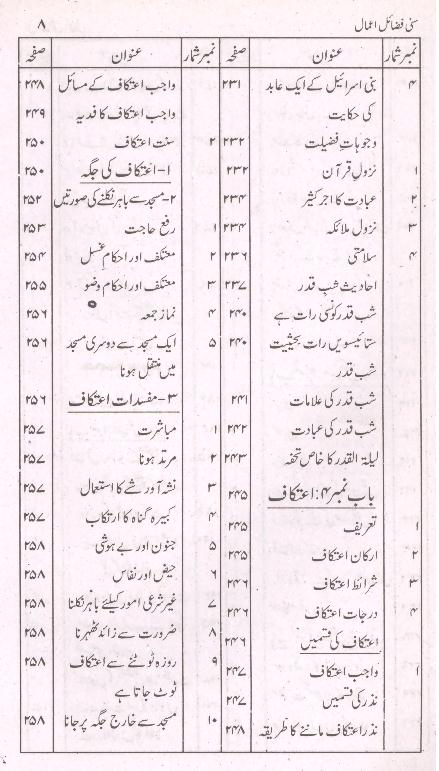 سنی فضائل اعمال ۸
نمبر شمار عنوان صفحہ
۴ بنی اسرائیل کے ایک عابد ۲۳۱
کی حکایت
وجوہات فضیلت ۲۳۲
۱ نزول قرآن ۲۳۲
۲ عبادت کا اجر کثیر ۲۳۴
۳ نزول ملائکہ ۲۳۴
۴ سلامتی ۲۳۶
احادیث شب قدر ۲۳۷
شب قدر کونسی رات ہے ۲۴۰
ستائیسویں رات بحیثیت ۲۴۰
شب قدر
شب قدر کی علامات ۲۴۱
شب قدر کی عبادت ۲۴۲
لیلۃ القدر کا خاص تحفہ ۲۴۳
باب نمبر ۴: اعتکاف ۲۴۵
۱ تعریف ۲۴۵
۲ ارکان اعتکاف ۲۴۵
۳ شرائط اعتکاف ۲۴۶
۴ درجات اعتکاف ۲۴۶
اعتکاف کی قسمیں ۲۴۶
۱ واجب اعتکاف ۲۴۷
نذر کی قسمیں ۲۴۷
نذر اعتکاف ماننے کا طریقہ ۲۴۸
نمبر شمار عنوان صفحہ
واجب اعتکاف کے مسائل ۲۴۸
واجب اعتکاف کا فدیہ ۲۴۹
۲ سنت اعتکاف ۲۵۰
۱- اعتکاف کی جگہ ۲۵۰
۲- مسجد سے باہر نکلنے کی صورتیں ۲۵۲
۱ رفع حاجت ۲۵۳
۲ معتکف اور احکام غسل ۲۵۴
۳ معتکف اور احکام وضو ۲۵۵
۴ نماز جمعہ ۲۵۶
۵ ایک مسجد سے دوسری مسجد ۲۵۶
میں منتقل ہونا
۳- مفسدات اعتکاف ۲۵۶
۱ مباشرت ۲۵۷
۲ مرتد ہونا ۲۵۷
۳ نشہ آور شے کا استعمال ۲۵۷
۴ کبیرہ گناہ کا ارتکاب ۲۵۷
۵ جنون اور بے ہوشی ۲۵۸
۶ حیض اور نفاس ۲۵۸
۷ غیر شرعی امور کیلئے باہر نکلنا ۲۵۸
۸ ضرورت سے زائد ٹھہرنا ۲۵۸
۹ روزہ ٹوٹنے سے اعتکاف ۲۵۸
ٹوٹ جاتا ہے
۱۰ مسجد سے خارج جگہ پر جانا ۲۵۸